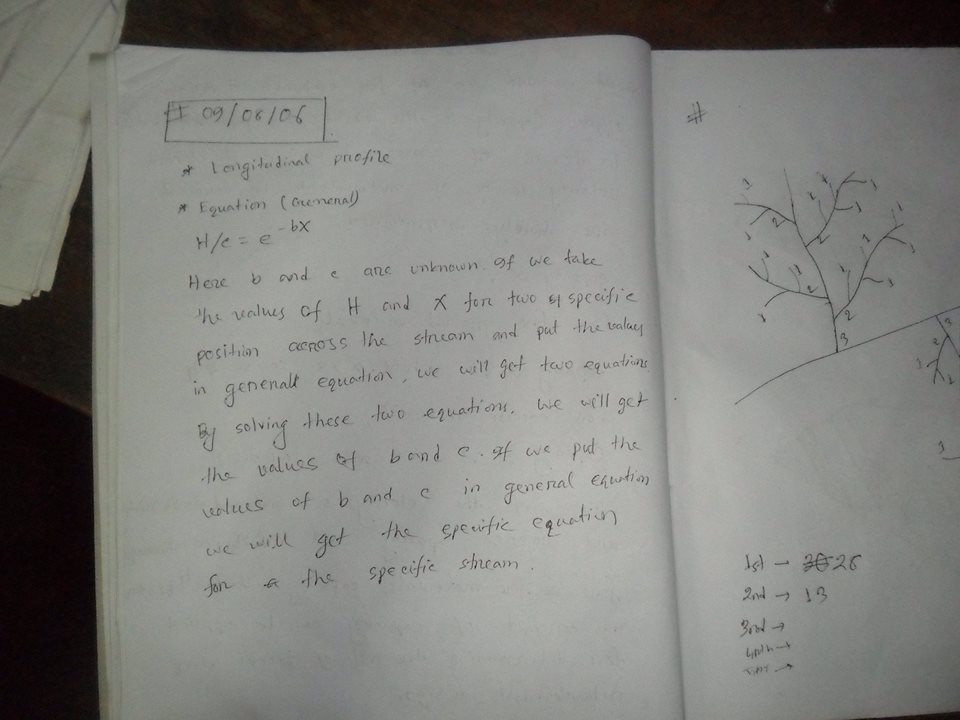 09/08/06
* Longitudinal profile
* Equation (General)
H/c = e^-bX
Here b and c are unknown. If we take
the values of H and X for two specific
position across the stream and put the values
in general equation, we will get two equations
By solving these two equations, we will get
the values of b and c. If we put the
values of b and c in general equation
we will get the specific equation
for the specific stream.
#
1st → 26
2nd → 13
3rd →
4th →